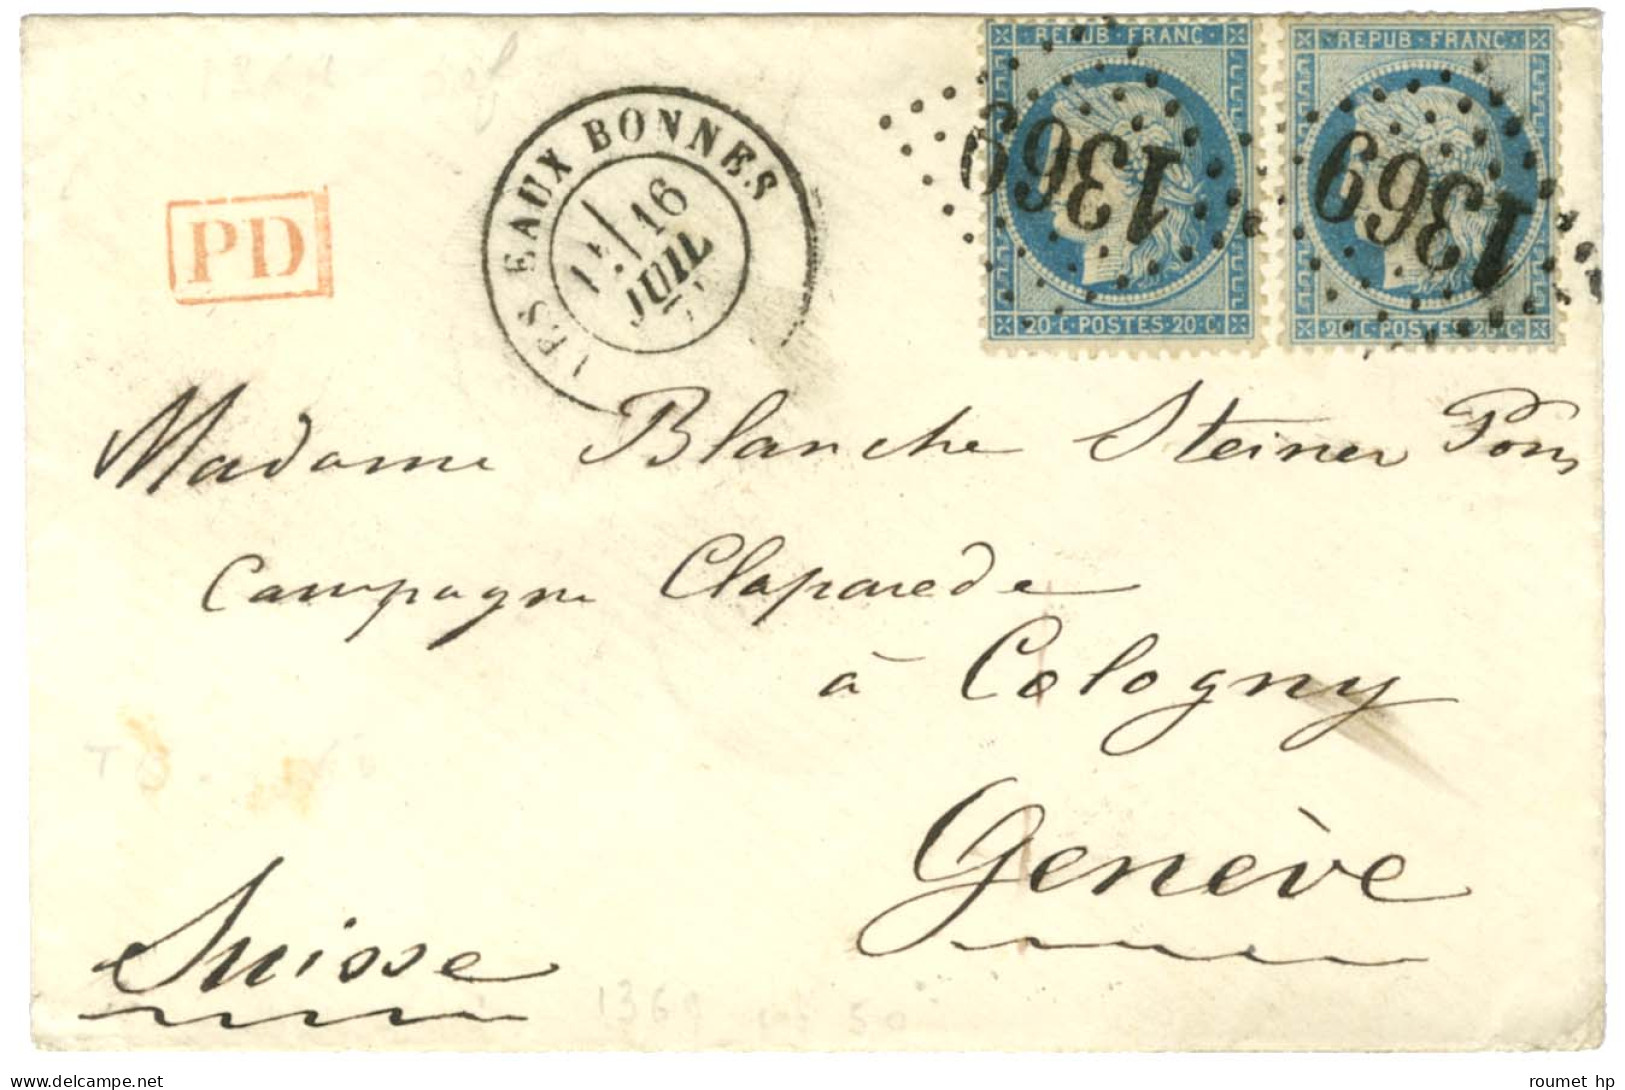 REPUB·FRANC
REPUB·FRANC
1369
1369
20·C·POSTES·20·C
20·C·POSTES·20·C
LES EAUX BONNES
16
JUIL
PD
Madame Blanche Steiner Pons
Campagne Claparede
à Cologny
Genève
Suisse
1369
50
roumet hp